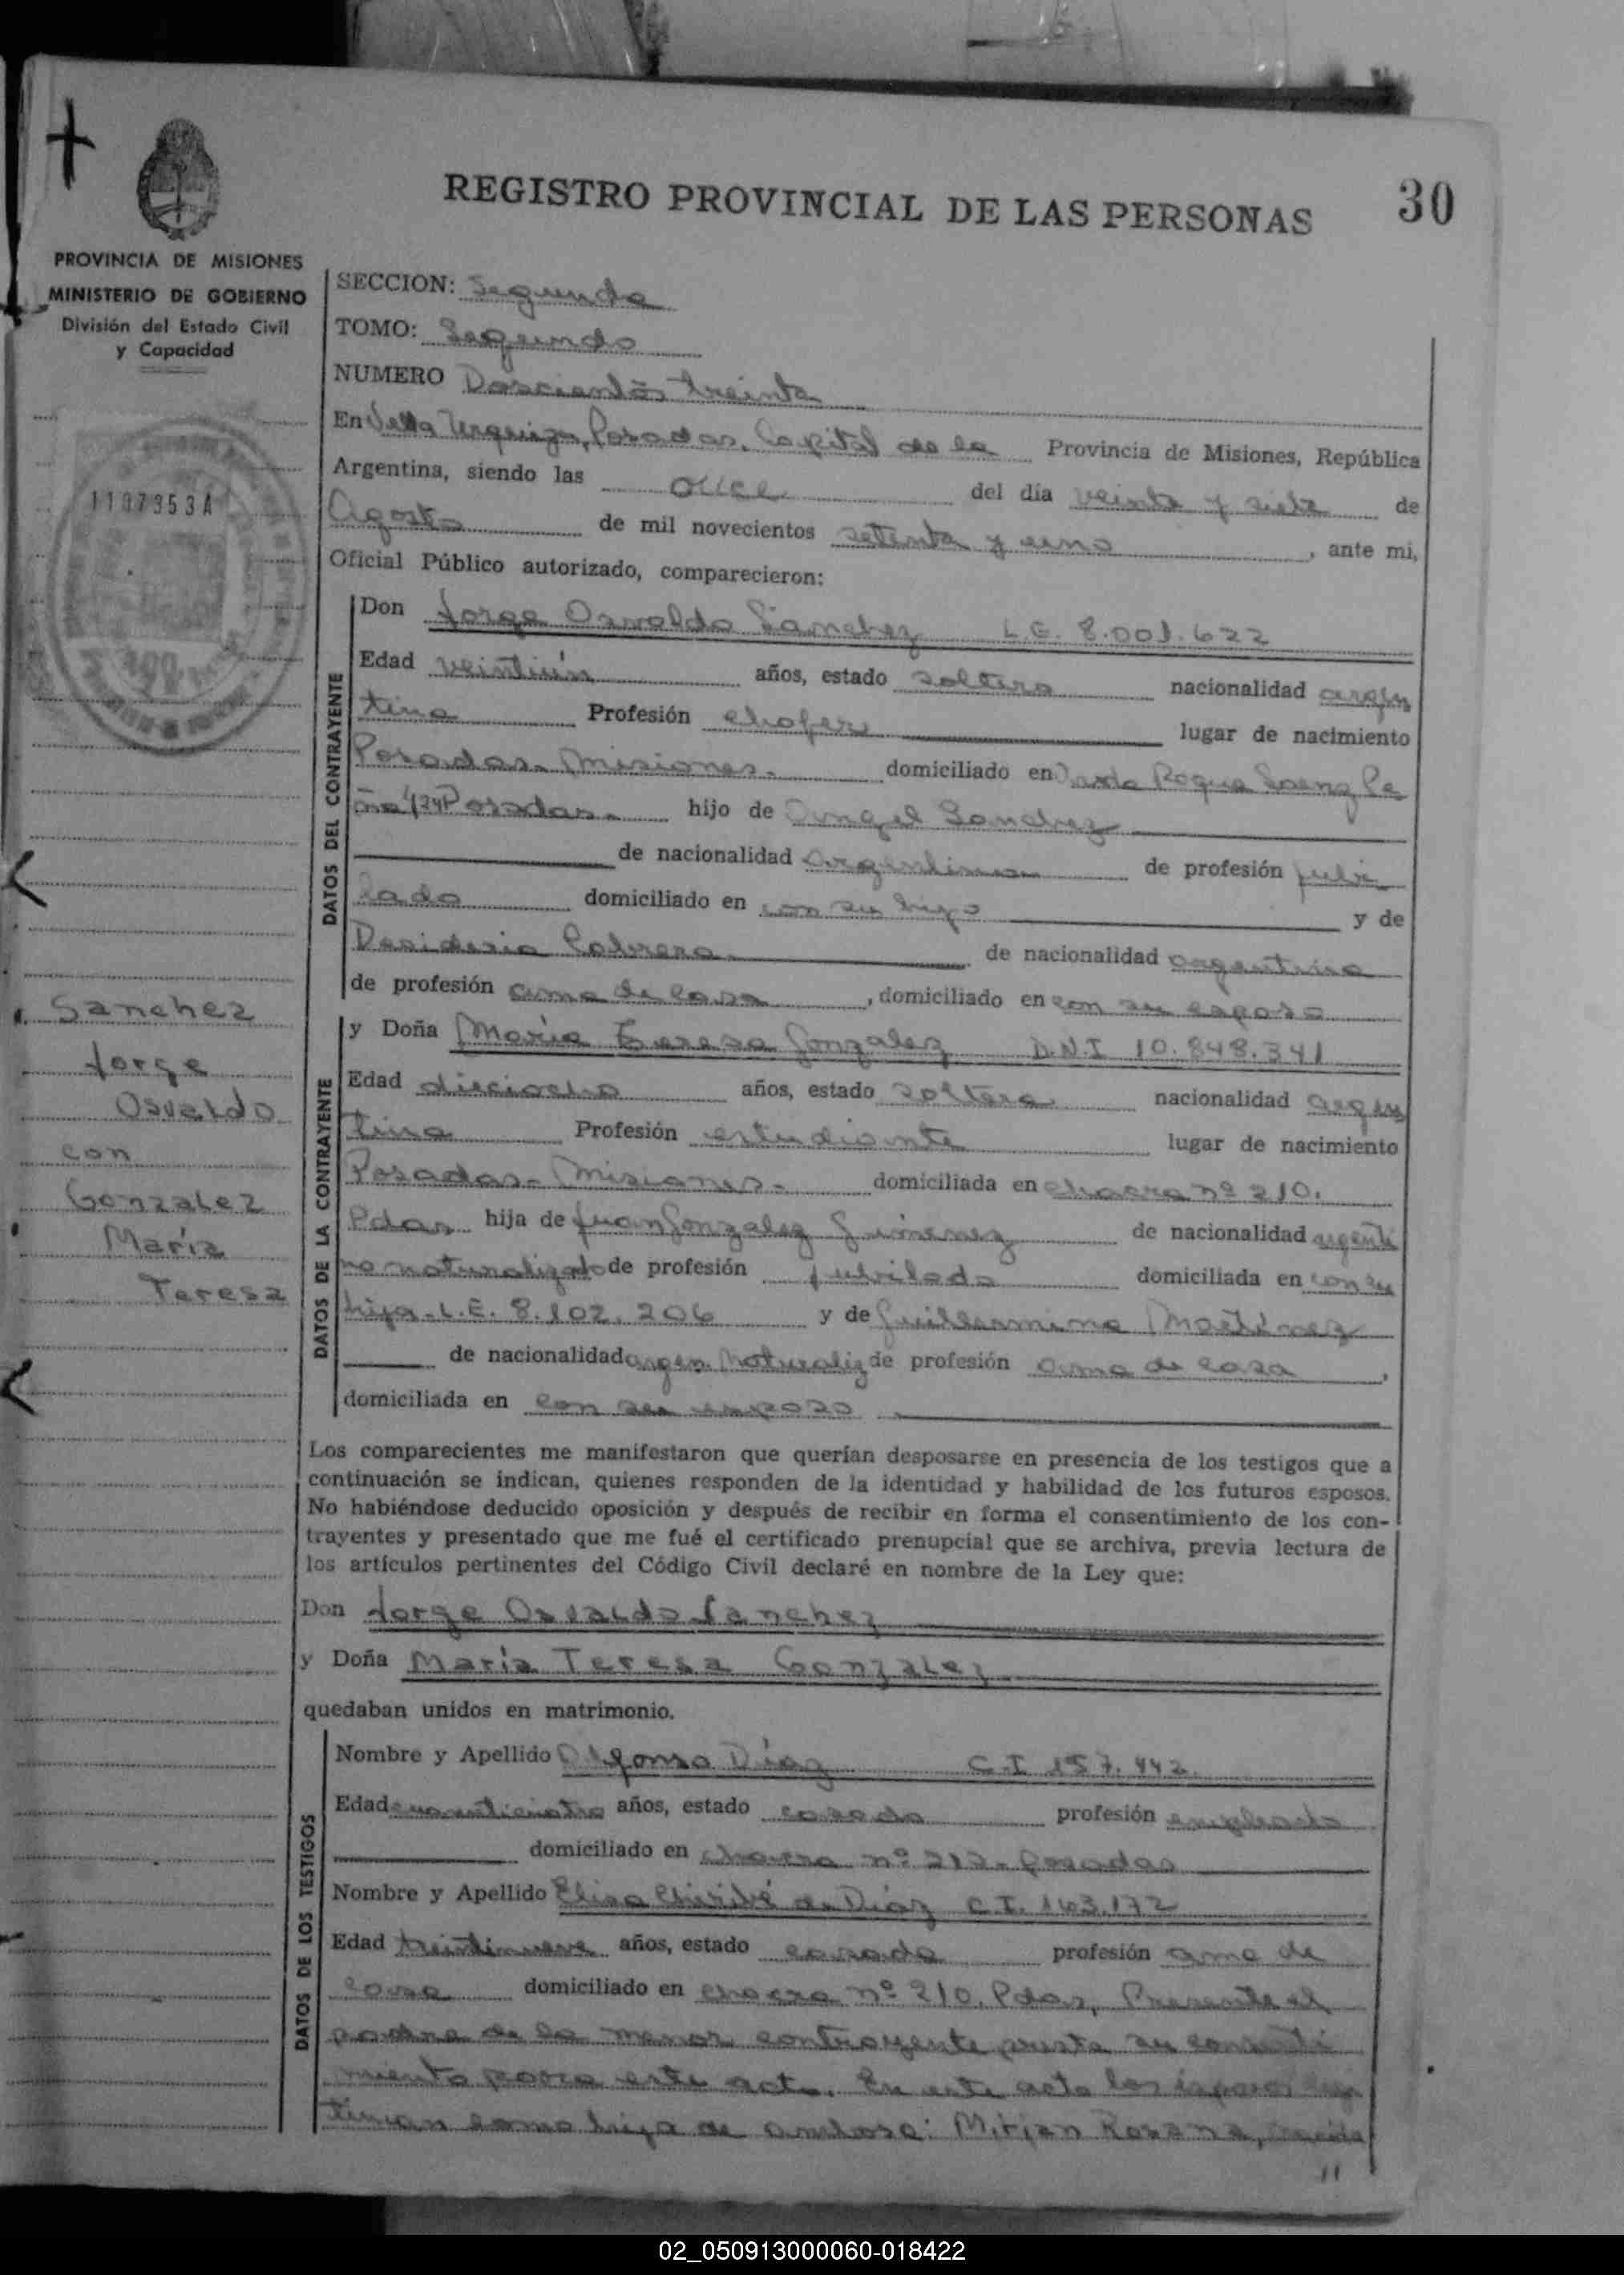 REGISTRO PROVINCIAL DE LAS PERSONAS
30
PROVINCIA DE MISIONES
MINISTERIO DE GOBIERNO
División del Estado Civil
y Capacidad
1107353A
100
Sanchez
Jorge
Osvaldo
con
Gonzalez
María
Teresa
SECCION: Segunda
TOMO: Segundo
NUMERO Doscientos treinta
En Villa Urquiza, Posadas, Capital de la Provincia de Misiones, República
Argentina, siendo las once del día veinte y siete de
Agosto de mil novecientos setenta y uno, ante mi,
Oficial Público autorizado, comparecieron:
DATOS DEL CONTRAYENTE
Don Jorge Osvaldo Sanchez L.E. 8.001.622
Edad veintiún años, estado soltero nacionalidad argen
tina Profesión chofer lugar de nacimiento
Posadas - Misiones - domiciliado en Roque Saenz Pe
ña 434 Posadas - hijo de Angel Sanchez
de nacionalidad argentino de profesión jubi
lado domiciliado en con su hijo y de
Desideria Cabrera de nacionalidad argentina
de profesión ama de casa, domiciliado en con su esposo
DATOS DE LA CONTRAYENTE
y Doña María Teresa Gonzalez D.N.I 10.848.341
Edad dieciocho años, estado soltera nacionalidad argen
tina Profesión estudiante lugar de nacimiento
Posadas - Misiones - domiciliada en chacra nº 210.
Pdas hija de Juan Gonzalez Gimenez de nacionalidad argenti
no naturalizado de profesión jubilado domiciliada en con su
hija - L.E. 8.102.206 y de Guillermina Martínez
de nacionalidad argen. Naturaliz de profesión ama de casa,
domiciliada en con su esposo
Los comparecientes me manifestaron que querían desposarse en presencia de los testigos que a
continuación se indican, quienes responden de la identidad y habilidad de los futuros esposos.
No habiéndose deducido oposición y después de recibir en forma el consentimiento de los con-
trayentes y presentado que me fué el certificado prenupcial que se archiva, previa lectura de
los artículos pertinentes del Código Civil declaré en nombre de la Ley que:
Don Jorge Osvaldo Sanchez
y Doña María Teresa Gonzalez
quedaban unidos en matrimonio.
DATOS DE LOS TESTIGOS
Nombre y Apellido Alfonso Díaz C.I 157.442
Edad años, estado casado profesión empleado
domiciliado en chacra nº 212 - Posadas
Nombre y Apellido Elisa de Díaz C.I. 163.172
Edad treintinueve años, estado casada profesión ama de
casa domiciliado en chacra nº 210. Pdas, Presente el
padre de la menor contrayente presta su consenti
miento para este acto. En este acto los esposos legi
timan como hija de ambos: Mirian Rosana, nacida
//
02_050913000060-018422